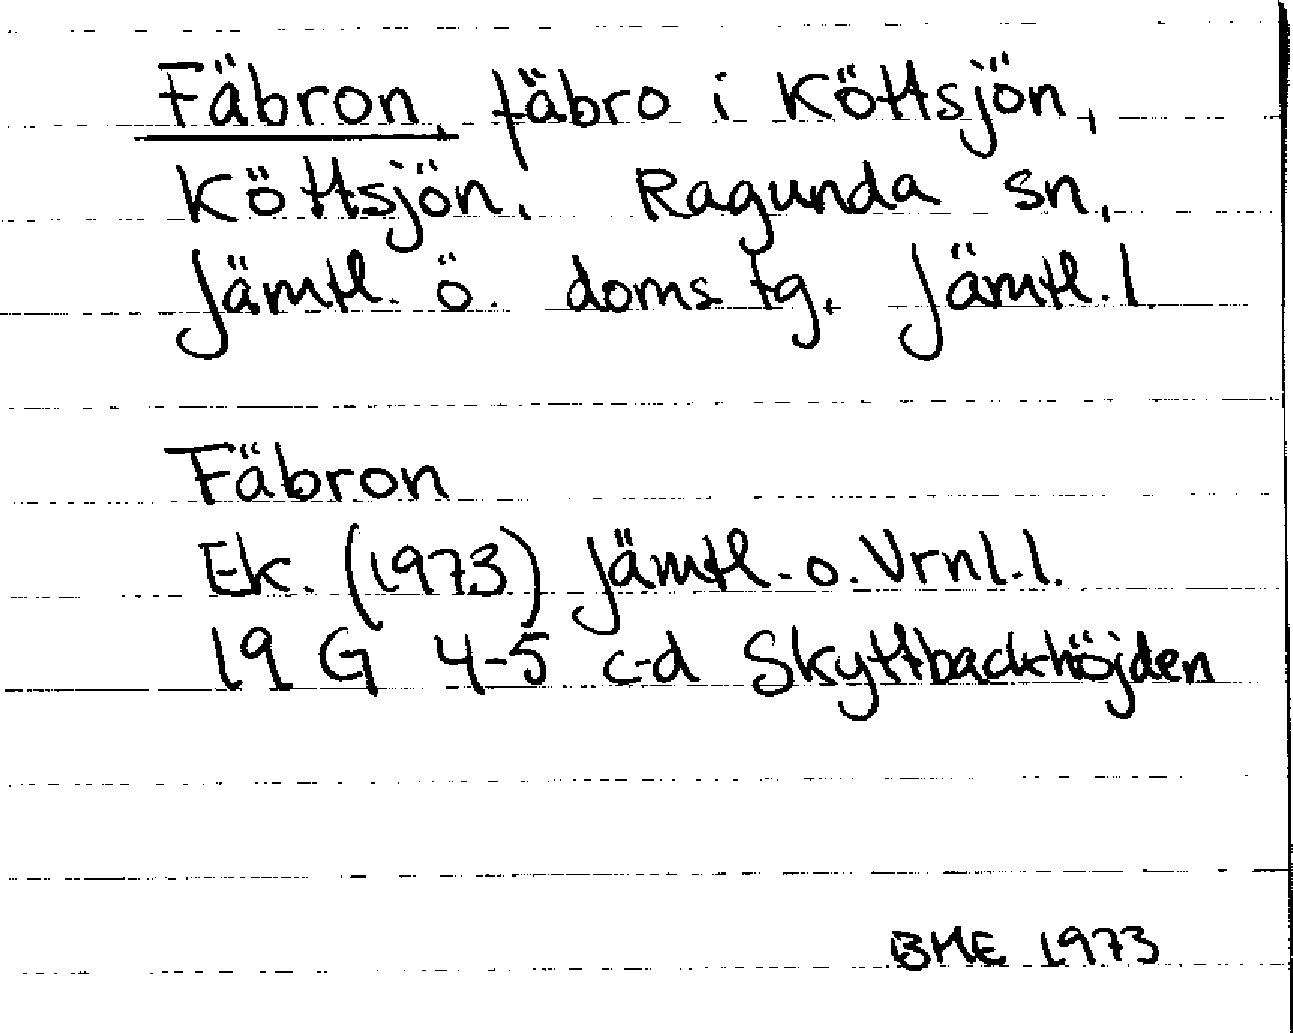 Fäbron, fäbro i Köttsjön,
Köttsjön. Ragunda sn,
Jämtl. ö. doms tg. Jämtl. l.
Fäbron
Ek. (1973) Jämtl. o. Vrnl. l.
19 G 4-5 c-d Skyttbackhöjden
BME 1973